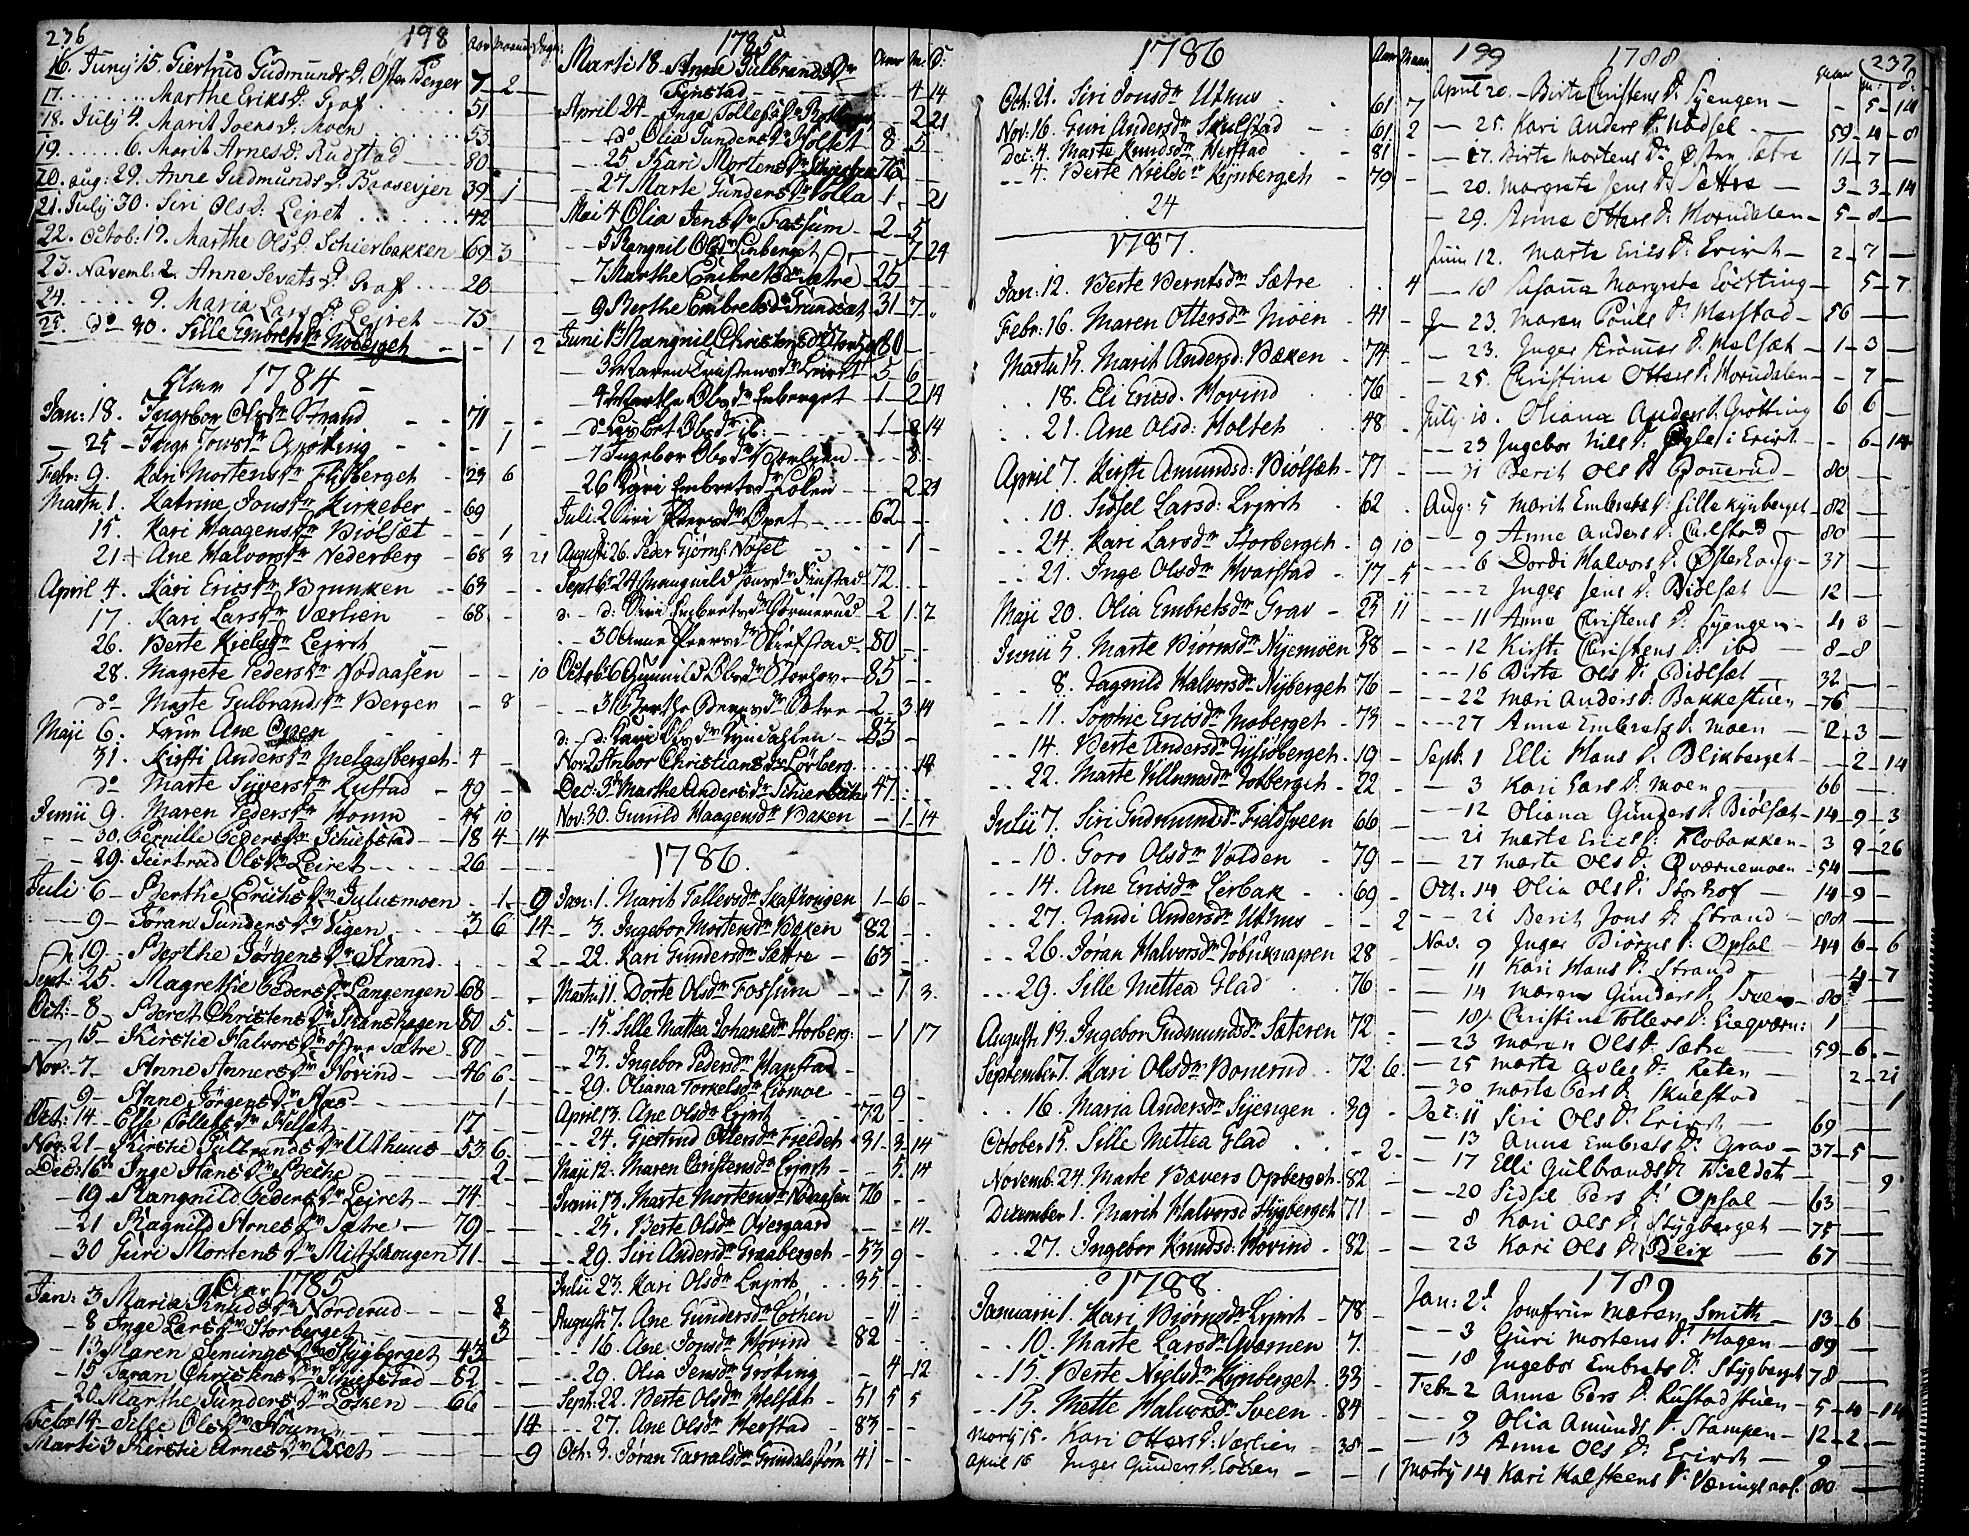 236
198
Aar Maan Dage
16. Junÿ 15. Giertrud Gudmunds D: Øster Berger 7 - 2
17. Marthe Eriks D: Graf 51
18. July 4. Marit Joens D: Moen 53
19. 6. Marit Arnes D: Rudstad 80
20. aug: 29. Anne Gudmunds D: Baasevjen 39 1
21. July 30. Siri Ols D: Lejret 42
22. Octob: 19. Marthe Ols D: Schierbakken 69 3
23. Novemb: 2. Anne Sevats D: Graf 20
24. 9. Maria Lars D: Lejret 75
25. do 30. Sille Embrets Dr Moberget - 1 2
Aar 1784
Jan: 18. Ingebor Olsdr Strand 71
25 - Inge Jonsdr Grøtting - 1
Febr: 9. Kari Mortensdr Flisberget 23 6
Martii 1. Katrine Jonsdr Kirkeber 69
15. Kari Haagensdr Biølset - 1
21 + Ane Halvorsdr Nederberg 68 3 21
April 4. Kari Ericsdr Brunken 63
17. Kari Larsdr Værlien 68
26. Berte Kielsdr Lejret
28. Magrete Pedersdr Nodaasen - - 10
do Marte Gulbrandsdr Bergen - 8
Maji 6. Frue Ane Open
31. Kirsti Andersdr Melausberget 4
do Marte Syversdr Rustad 49
Junii 9. Maren Pedersdr Houm 45 10
30. Pernille Peders Dr Schiefstad 18 4 14
29. Geirtrud Ols Dr Leiret 26
Juli 6 - Berthe Erichs Dr Julusmoen - 1 - 9
9 - Føran Gunders Dr Vigen 3 6 14
19 - Berthe Jørgens Dr Strand 2
Sept: 25. Magrethe Peders Dr Langengen 68
Oct: 8 - Beret Christens Dr Skanshagen 80 5
15 - Kierstie Halvors Dr østre Sætre 80
Nov: 7 - Anne Anners Dr Hovind 46 6
9 - Anne Jørgens Dr Aas 1
Oct: 14 - Else Tollefs Dr Hielset 17
Nov: 21 - Kirstie Gulbrands Dr Uthuus 53 6
Dec: 16 Inge Hans Dr Beche 2
19 - Rangnild Peders Dr Leiret 74
21 Ragnild Arnes Dr Sætre 79
30 Guri Mortens Dr Mitskougen 71
Aar 1785
Jan: 3 Maria Knuds Dr Norderud 8
8 Inge Lars Dr Storberget 3
13 Maren Simings Dr Stygberget 43
15 Taran Christens Dr Schiefstad 82
20 Marthe Gunders Dr Løken 66
Febr 14 Sille Ols Dr Houm 14
Marti 3 Kirstie Arnes Dr Oset 9
1785
Aar M: D:
Marti 18. Anne Gulbrands Dr
Finstad 4 14
April 24 Inge Tollefs Dr 2 21
do Olia Gunders Dr Holtet 8 5
25 Kari Mortens Dr 76
27 Marte Gunders Dr Volla 1 - 21
Mai 4 Olia Jens Dr Fassum 2 5
5 Rangnil Ols Dr Enberget 7 24
7 Marthe Embrets Dr Sætre 25
9 Berthe Embrets Dr Grundset 31 7
Juni 1 Rangnil Christens Dr 80
3 Maren Christens Dr Leiret 5 6
4 Marthe Ols Dr Enberget 1 2 14
do Lisbet Ols Dr ib: 1 2 14
7 Ingebor Ols Dr Værlien 8
26 Kari Embrets Dr Løken 2 21
Juli: 2 Siri Peers Dr Opet 62
Augusti 26. Peder Giørns: Nøsel 1
Septbr 24 Rangnild Jens Dr Finstad 72
d: d: Siri Embrets Dr Gørmerud 2 1 7
30 Anne Peers Dr Skiefstad 80
Octob: 6 Gunnil Ols Dr Storhov 85
3 Berthe Peers Dr Sætre 2 3 14
d: d: Kari Ols Dr Gundahlen 83
Nov 2 Anbor Christians Dr Lørberg 14
Dec: 3 Marthe Anders Dr Schierbak 47
Nov: 30. Gunild Haagensdr Baken - 1 14
1786.
Jan: 1. Marit Tollevsdr Skafskougen 1 6
3. Ingebor Mortensdr Baken 82
22. Kari Gundersdr Sættre 63
Martii 11. Dorte Olsdr Fossum - 1 3.
15. Sille Mattea Johansdr Storberg: - 1 17
23. Ingebor Pedersdr Hanstad
29. Oliana Torkelsdr Lidmoe - 9
April 13. Ane Olsdr Lejret 72
24. Giertrud Ottersdr Fieldet 31 3 14
Maji 12. Maren Christensdr Lejret - 5 14
Junii 13. Marte Mortensdr Nodaasen 76
25. Berte Olsdr Overgaard - - 14
29. Siri Andersdr Graaberget 53 9
Julii 23. Kari Olsdr Lejret 35
Augusti 7. Ane Gundersdr Løthen - 11
16. Ane Jonsdr Hovind 82
29. Olia Jensdr Grøting - 4 12
Sept: 22. Berte Olsdr Melset 51 5 5
27. Ane Olsdr Herstad 83
Octr: 3. Jøran Tarraldsdr Grindalstorn 41
1786
Aar Maan
Oct: 21. Siri Jonsdr Uthus 61 7
Nov: 16. Guri Andersdr Skulstad 61 2
Dec: 4. Marte Knudsdr Nerstad 81
4. Berte Nielsdr Kynberget 79
24
1787.
Jan: 12. Berte Berntsdr Sætre 4
Febr: 16. Maren Ottersdr Moen 41
Martii 15. Marit Andersd: Baken 74
18. Eli Ericsd: Hovind 76
21. Ane Olsd: Holtet 48
April 7. Kirsti Amundsd: Biølset 77
10. Sidsel Larsd: Lejret 62
24. Kari Larsdr Storberget 9 10
21. Inge Olsdr Kvarstad 17 5
Maji 20. Olia Embretsdr Grav 25 11
Junii 5. Marte Biørnsdr Nyemoen 38
8. Tagnild Halvorsdr Nyberget 76
11. Sophie Ericsdr Moberget 73
14. Berte Andersdr Gylsberget 19
22. Marte Villumsdr Forberget 22
Julii 7. Siri Gudmundsdr Fieldsveen 66
10. Goro Olsdr Volden 79
14. Ane Ericsdr Lerbak 69
27. Randi Andersdr Uthus 2
26. Joran Halvorsdr Jobsknapen 28
29. Sille Mettea Glad 76
Augusti 13. Ingebor Gudmundsdr Sæteren 72
September 7. Kari Olsdr Bonerud 72 6
16. Maria Andersdr Syengen 39
October 15. Sille Mettea Glad - 2
Novemb. 24. Marte Bævers Opberget 82
December 1. Marit Halvorsd Stygberget 71
27. Ingebor Knudsd: Hovind 82
1788.
Januarii 1. Kari Biørnsdr Lejret 78
10. Marte Larsdr Qværnen 7
15. Berte Nielsdr Kynberget 33
15. Mette Halvorsdr Sveen 84
Martÿ 15. Kari Otters D: Værlien 38
April 16 Inger Gunders D: Løthen 1
199
1788
237
Aar M: D:
April 20. Birte Christens D: Syengen - 5 - 14
25. Kari Anders D: Nødsel 59 - 4 - 8
27. Birte Mortens Dr Østen Sætre 11 - 7
20. Margrete Jens D: Sættre 3 - 3 - 14
29. Anne Otters D: Horndalen 5 - 8
Junii 12. Marte Erics D: Erixet 2 - 7
18 Susanna Margrete Løchting 5 - 7
23. Maren Pouls D: Herstad 56
23. Inger Kromer D: Melset 1 - 3
25. Christine Otters D: Horndalen - 7
July 10. Oliana Anders D: Grøtting 6 6
23 Ingebor Nils D: Øgle i Erixet - 6 - 14
31 Berit Ols D: Bonerud 80
Aug: 5 Marit Embrets D: Lille Kynberget 82
9 Anne Anders D: Carlstad 80
6 Dordi Halvors D: Østerhaug 37
2 Inger Jens D: Biølset 12
11 Anne Christens D: Syengen 4 3
12 Kirsti Christens D: ibd 8 - 8
16 Birte Ols D: Biølset 32
22 Mari Anders D: Bakkestuen 76
27 Anne Embrets D: Moen 2 - 3
Septr: 1 Elli Hans D: Blikberget - 2 - 14
3 Kari Lars D: Moen 66
12 Oliana Gunders D: Biølset 14 - 9 - 3
21 Marte Erics D: Flobakken 3 9 - 26
27 Marte Ols D: Qværnemoen 54
Oct: 14 Olia Ols D: Storhof 14 - 9
21 Berit Jons D: Strand 88
Nov. 9 Inger Biørns D: Opsal 44 6 - 6
11 Kari Hans D: Strand 4 - 7
14 Maren Gunders D: Sveen 80
18 Christine Tollevs D: Liegværn: 1
23 Maren Ols D: Sætre 59 - 6
25 Marte Asles D: Reten 2 - 21
30 Marte Pers D: Skulstad 1
Dec: 11 Siri Ols D: Erixet 69
13 Anne Embrets D: Grav 37 - 5
17 Elli Gulbrands D: Kieldet 9
20 Sidsel Pers D: Opsal 63
8 Kari Ols D: Stygberget 75
23 Kari Ols D: Beix 67
1789
Jan: 2d Jomfrue Maren Smith 13 - 6
3 Guri Mortens D: Hagen 89
18 Ingebor Embrets D: Stygberget 78
Febr 2 Anne Pers D: Rustadstuen 5 - 10 - 14
9 Olia Amunds D: Stampen 12 - 2
13 Anne Ols D: Erixet 9
Martÿ 14 Kari Halsteens D: Væringsaas: 80